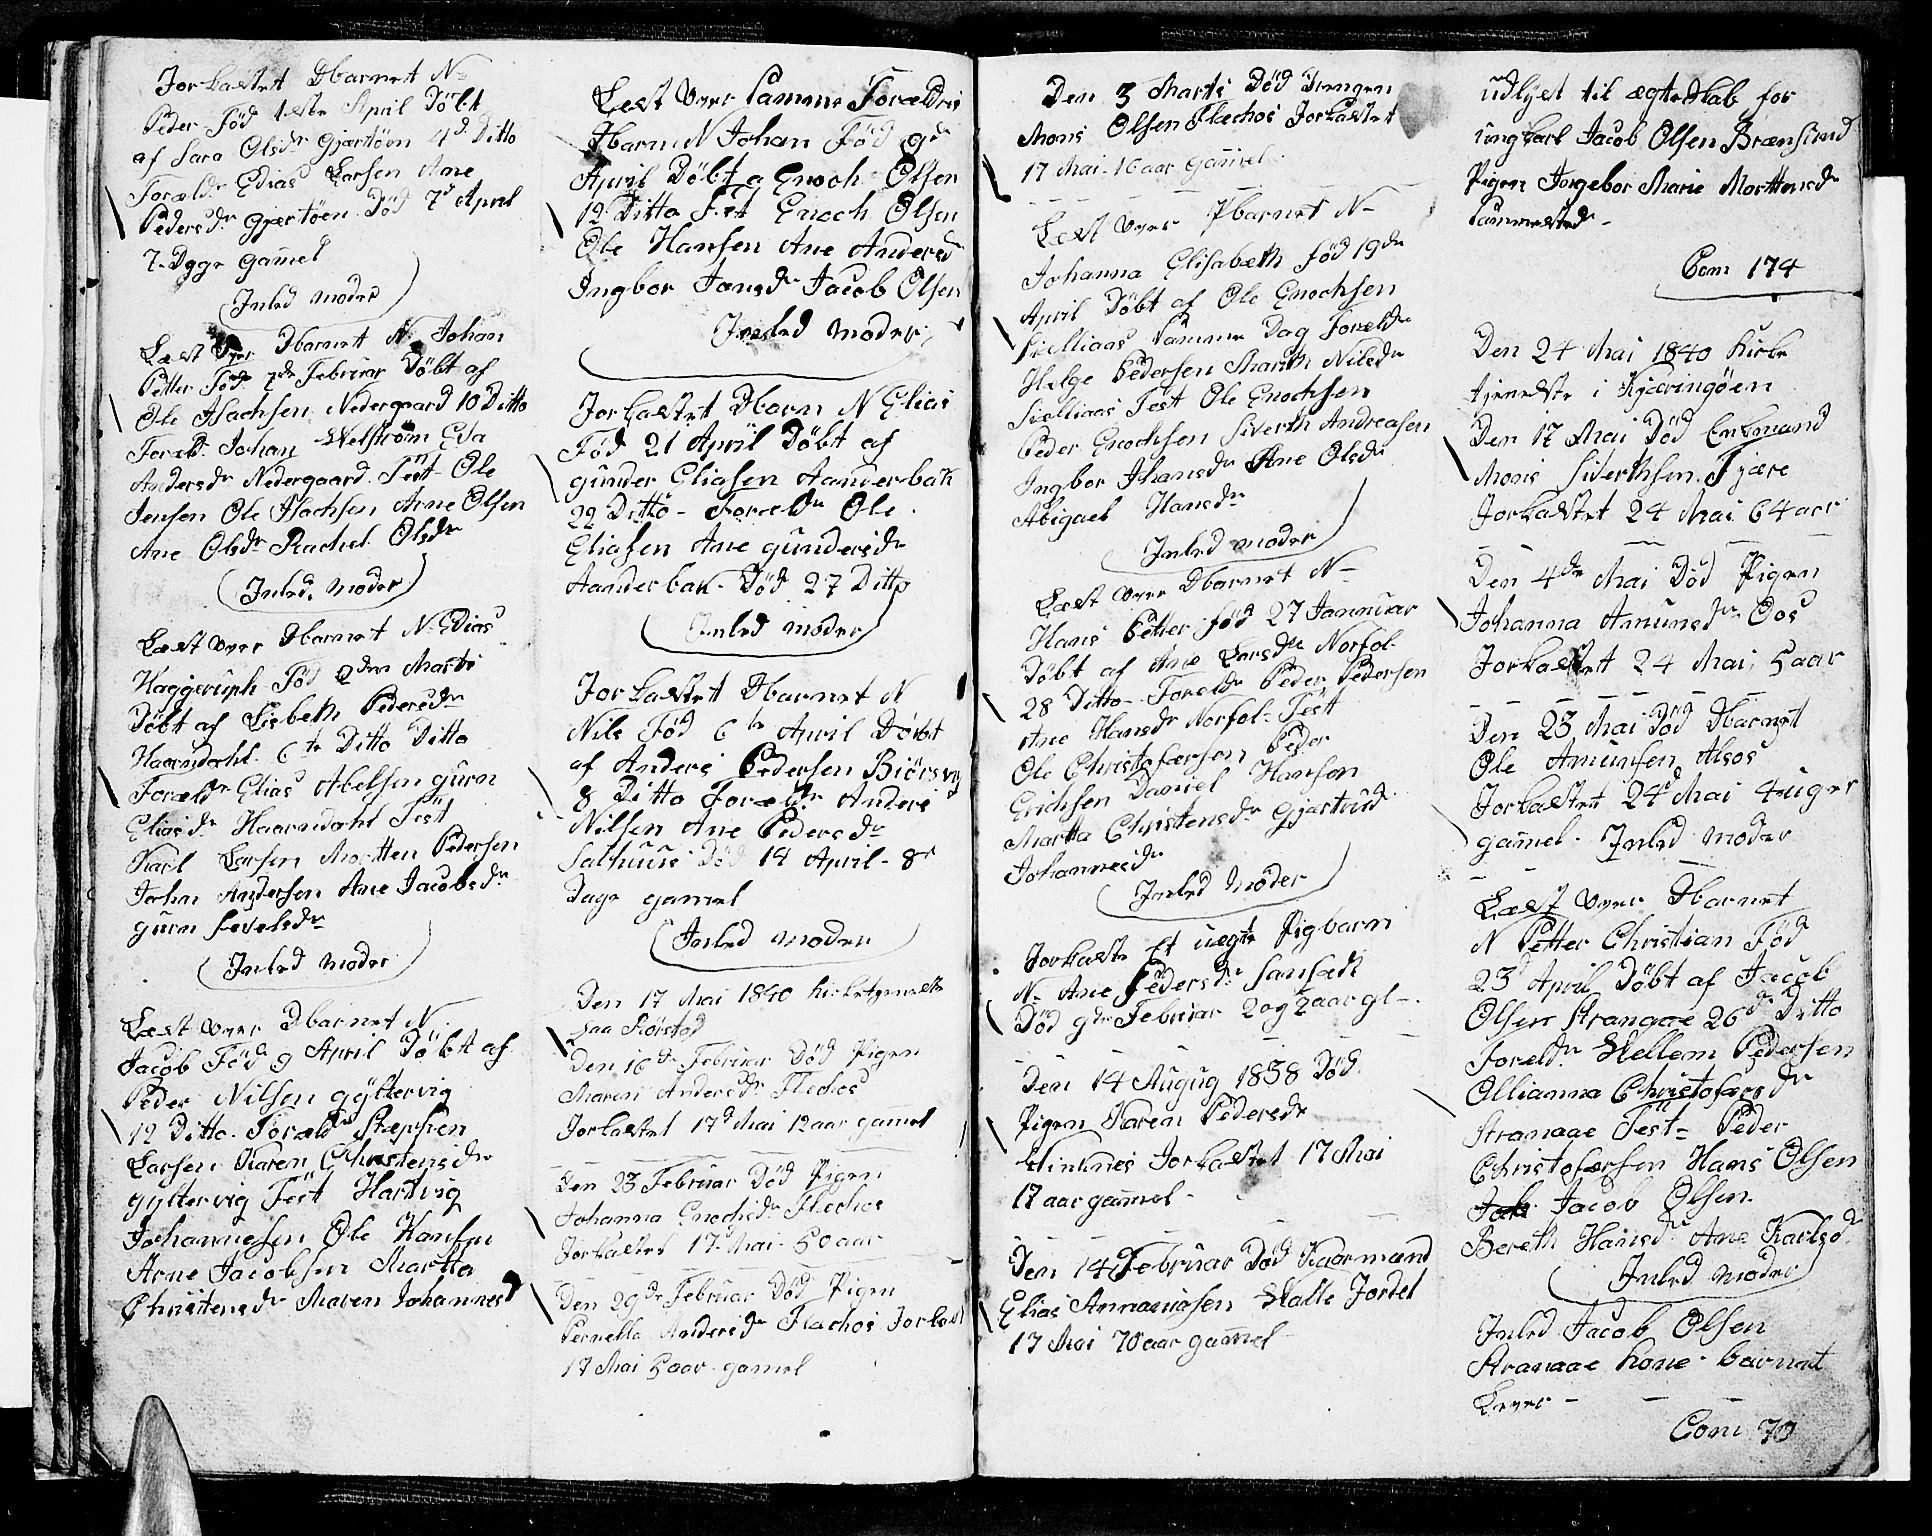 Jorkastet Dbarnet N-
Peder Fød 1ste April Døbt
af Sara Olsdr Gjærtøen 4d Ditto
Foreldr Edias Larsen Ane
Pedersdr Gjærtøen Død 7d April
7 Dage gamel
Inled moder
Læst over Dbarnet N Johan
Petter Fød 7de Februar Døbt af
Ole Isachsen Nedergaard 10 Ditto
Foreld. Johan Welstrøm Eda
Andersdr Nedergaard Test Ole
Jensen Ole Isachsen Arne Olsen
Ane Olsdr Rachel Olsdr
Inled moder
Læst over Dbarnet N Edias
Haggeruph Fød 2den Marti
Døbt af Lisbeth Pedersdr
Haarndahl 6te Ditto Ditto
Foreldr Elias Abelsen Gurn
Eliasdr Haarndahl Test
Karl Larsen Mortten Pedersen
John Andersen Ane Jacobsdr
Gurn
Inled moder
Læst over Dbarnet N
Jacob Fød 9 April Døbt af
Peder Nilsen Gyltervig
12 Ditto Foreldr Stephen
Larsen Karen Christensdr
Gyltervig Test Hartvig
Johannesen Ole Hansen
Arne Jacobsen Martta
Christensdr Maren Johannesd
Læst over Samme Foreldres
Dbarn N Johan Fød 9de
April Døbt a Enoch Olsen
12 Ditto Test Enoch Olsen
Ole Hansen Ane Andersd
Ingbor Jonsdr Jacob Olsen
Inled moder
Jorkastet Dbarn N Elias
Fød 21 April Døbt af
Gunder Eliasen Aanderbak
22 Ditto - Foreldr Ole
Eliasen Ane Gundersdr
Aanderbak Død 27 Ditto
Inled moder
Jorkastet Dbarnet N
Nils Fød 6te April Døbt
af Anders Pedersen Biørsvig
8 Ditto Foreldr Anders
Nilsen Ane Pedersdr
Salhuus Død 14 April - 8
Dage gamel
Inled moder
Den 17 Mai 1840 kirketjeneste
paa Rørstad
Den 16de Februar Død Pigen
Maren Andersdr Flechos
Jorkastet 17d Mai 12 aar gamel
Den 23 Februar Død Pigen
Johanna Enochsdr Flechos
Jorkastet 17 Mai - 50 aar
Den 29de Februar Død Pigen
Pernella Andersdr Flechos Jorkast
17 Mai 5 aar gamel
Den 3 Marti Død Drengen
Mons Olsen Flechos Jorkastet
17 Mai - 16 aar gamel
Læst over Pbarnet N-
Johanna Elisabeth fød 19de
April Døbt af Ole Enochsen
samme Dag Foreldr
Helge Pedersen Marith Nilsdr
Test Ole Enochsen
Peder Enochsen Siverth Andreasen
Ingbor Jhansdr Ane Olsdr
Abigael Hansdr
Inled moder
Læst over Dbarnet N-
Hans Petter fød 27 Januar
Døbt af Ane Larsdr Norfol-
28 Ditto - Foreldr Peder Pedersen
Ane Hansdr Norfol - Test
Ole Christofersen Peder
Erichsen Daniel Hansen
Martta Christensdr Gjærtrud
Johannesdr
Inled moder
Jorkaste Et uægte Pigbarn
N- Ane Pedersdr
Død 9de Februar 2 og 2 aar gl -
Den 14 Augug 1838 Død
Pigen Karen Pedersdr
Jorkastet 17 Mai
17 aar gammel -
Den 14 Februar Død Kaarmand
Elias Annaniasen Jordet
17 Mai 70 aar gammel
udlyst til ægteskab for
ungkarl Jacob Olsen Brænstrnd
Pigen Ingebor Marie Morttensdr
sammested -
Com 174
Den 24 Mai 1840 kirke
tjeneste i Kjæringøen
Den 17 Mai Død Enkmand
Mons Siverthsen Fjære
Jorkastet 24 Mai 64 aar
Den 4de Mai Død Pigen
Johanna Amunsdr Oos
Jorkastet 24 Mai, 5 aar
Den 23 Mai Død Dbarnet
Ole Amunsen Alsos
Jorkastet 24d Mai 4 uger
gamel - Inled moder
Læst over Dbarnet
N Petter Christian Fød
23d April Døbt af Jacob
Olsen Stranaae 26d Ditto
Foreldr Wellem Pedersen
Ollianna Christofersdr
Stranaae Test - Peder
Christofersen Hans Olsen
Jacob Olsen
Bereth Hansdr Ane Karlsd.
Inled moder
Inled Jacob Olsen
Stranaae kone barnet
Lever -
Com 70